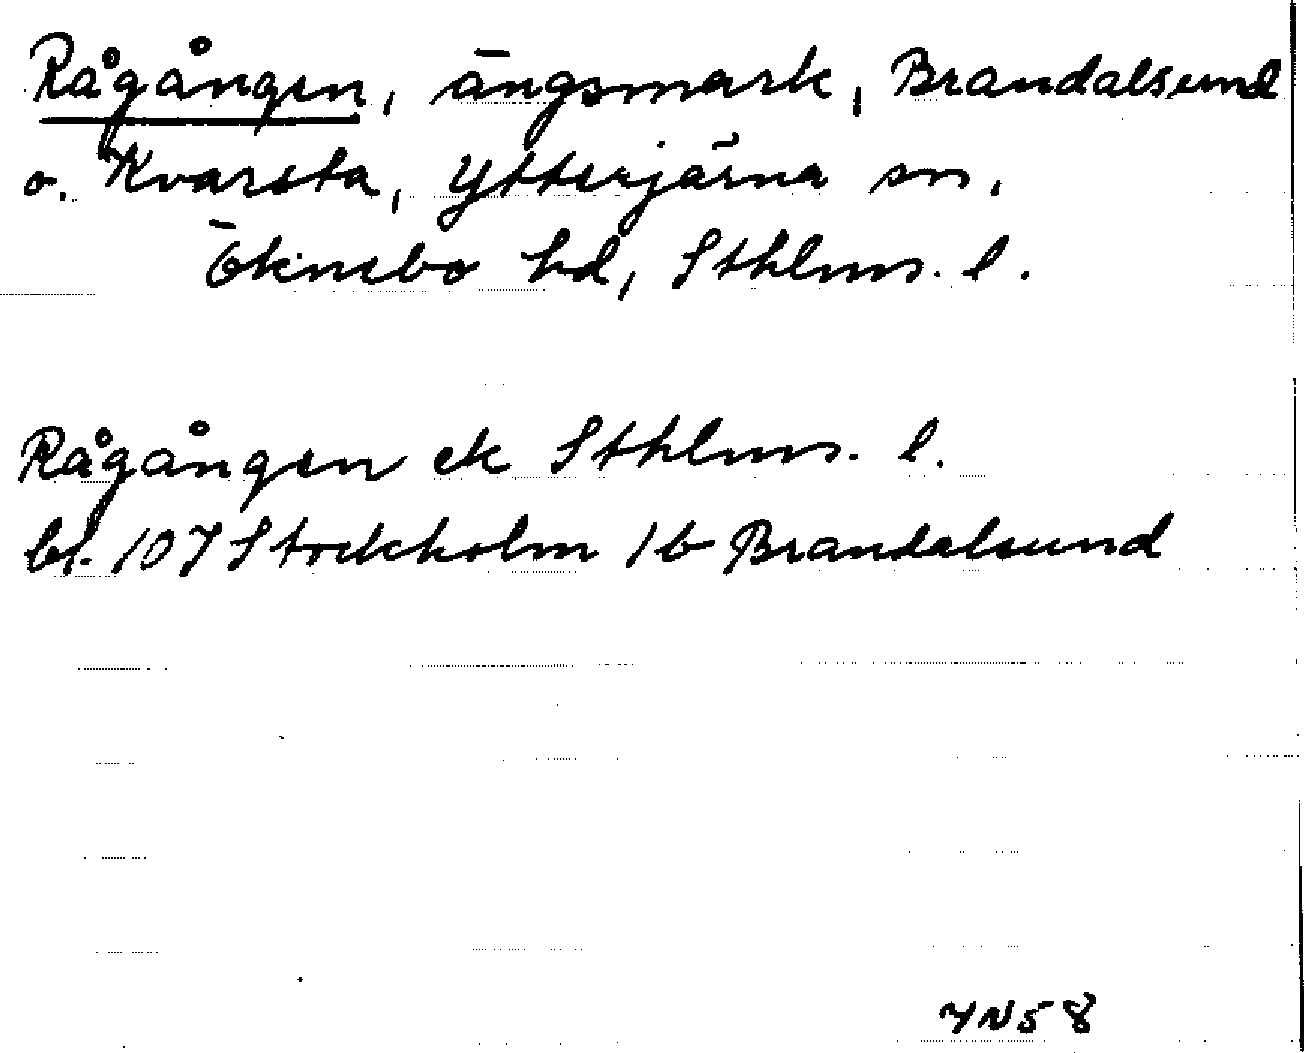 Rågången, ängsmark, Brandalsund
o. Kvarsta, Ytterjärna sn.
Öknebo hd, Sthlms. l.
Rågången ek Sthlms. l.
bl. 107 Stockholm 1b Brandalsund
YN58